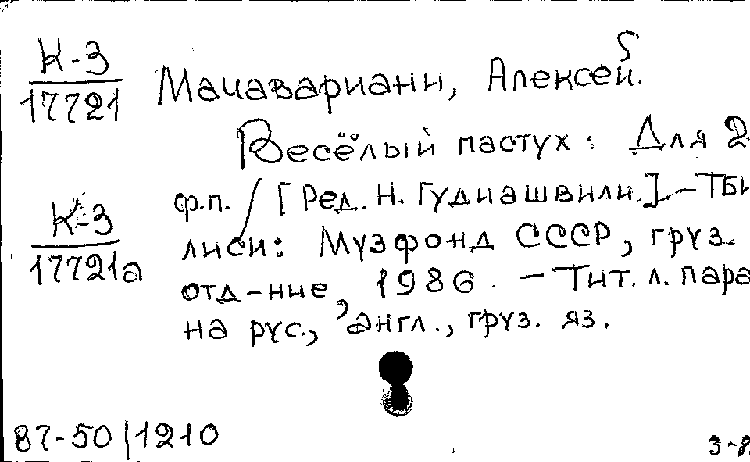 К-3
17721
Мачавариани, Алексей.
Весёлый пастух: Для 2
ф.п. / [Ред. Н. Гудиашвили.]. - Тби
К-3
17721а
лиси: Музфонд СССР, груз.
отд-ние, 1986. - Тит. л. пара
на рус., англ., груз. яз.
87-50|1210
3-8